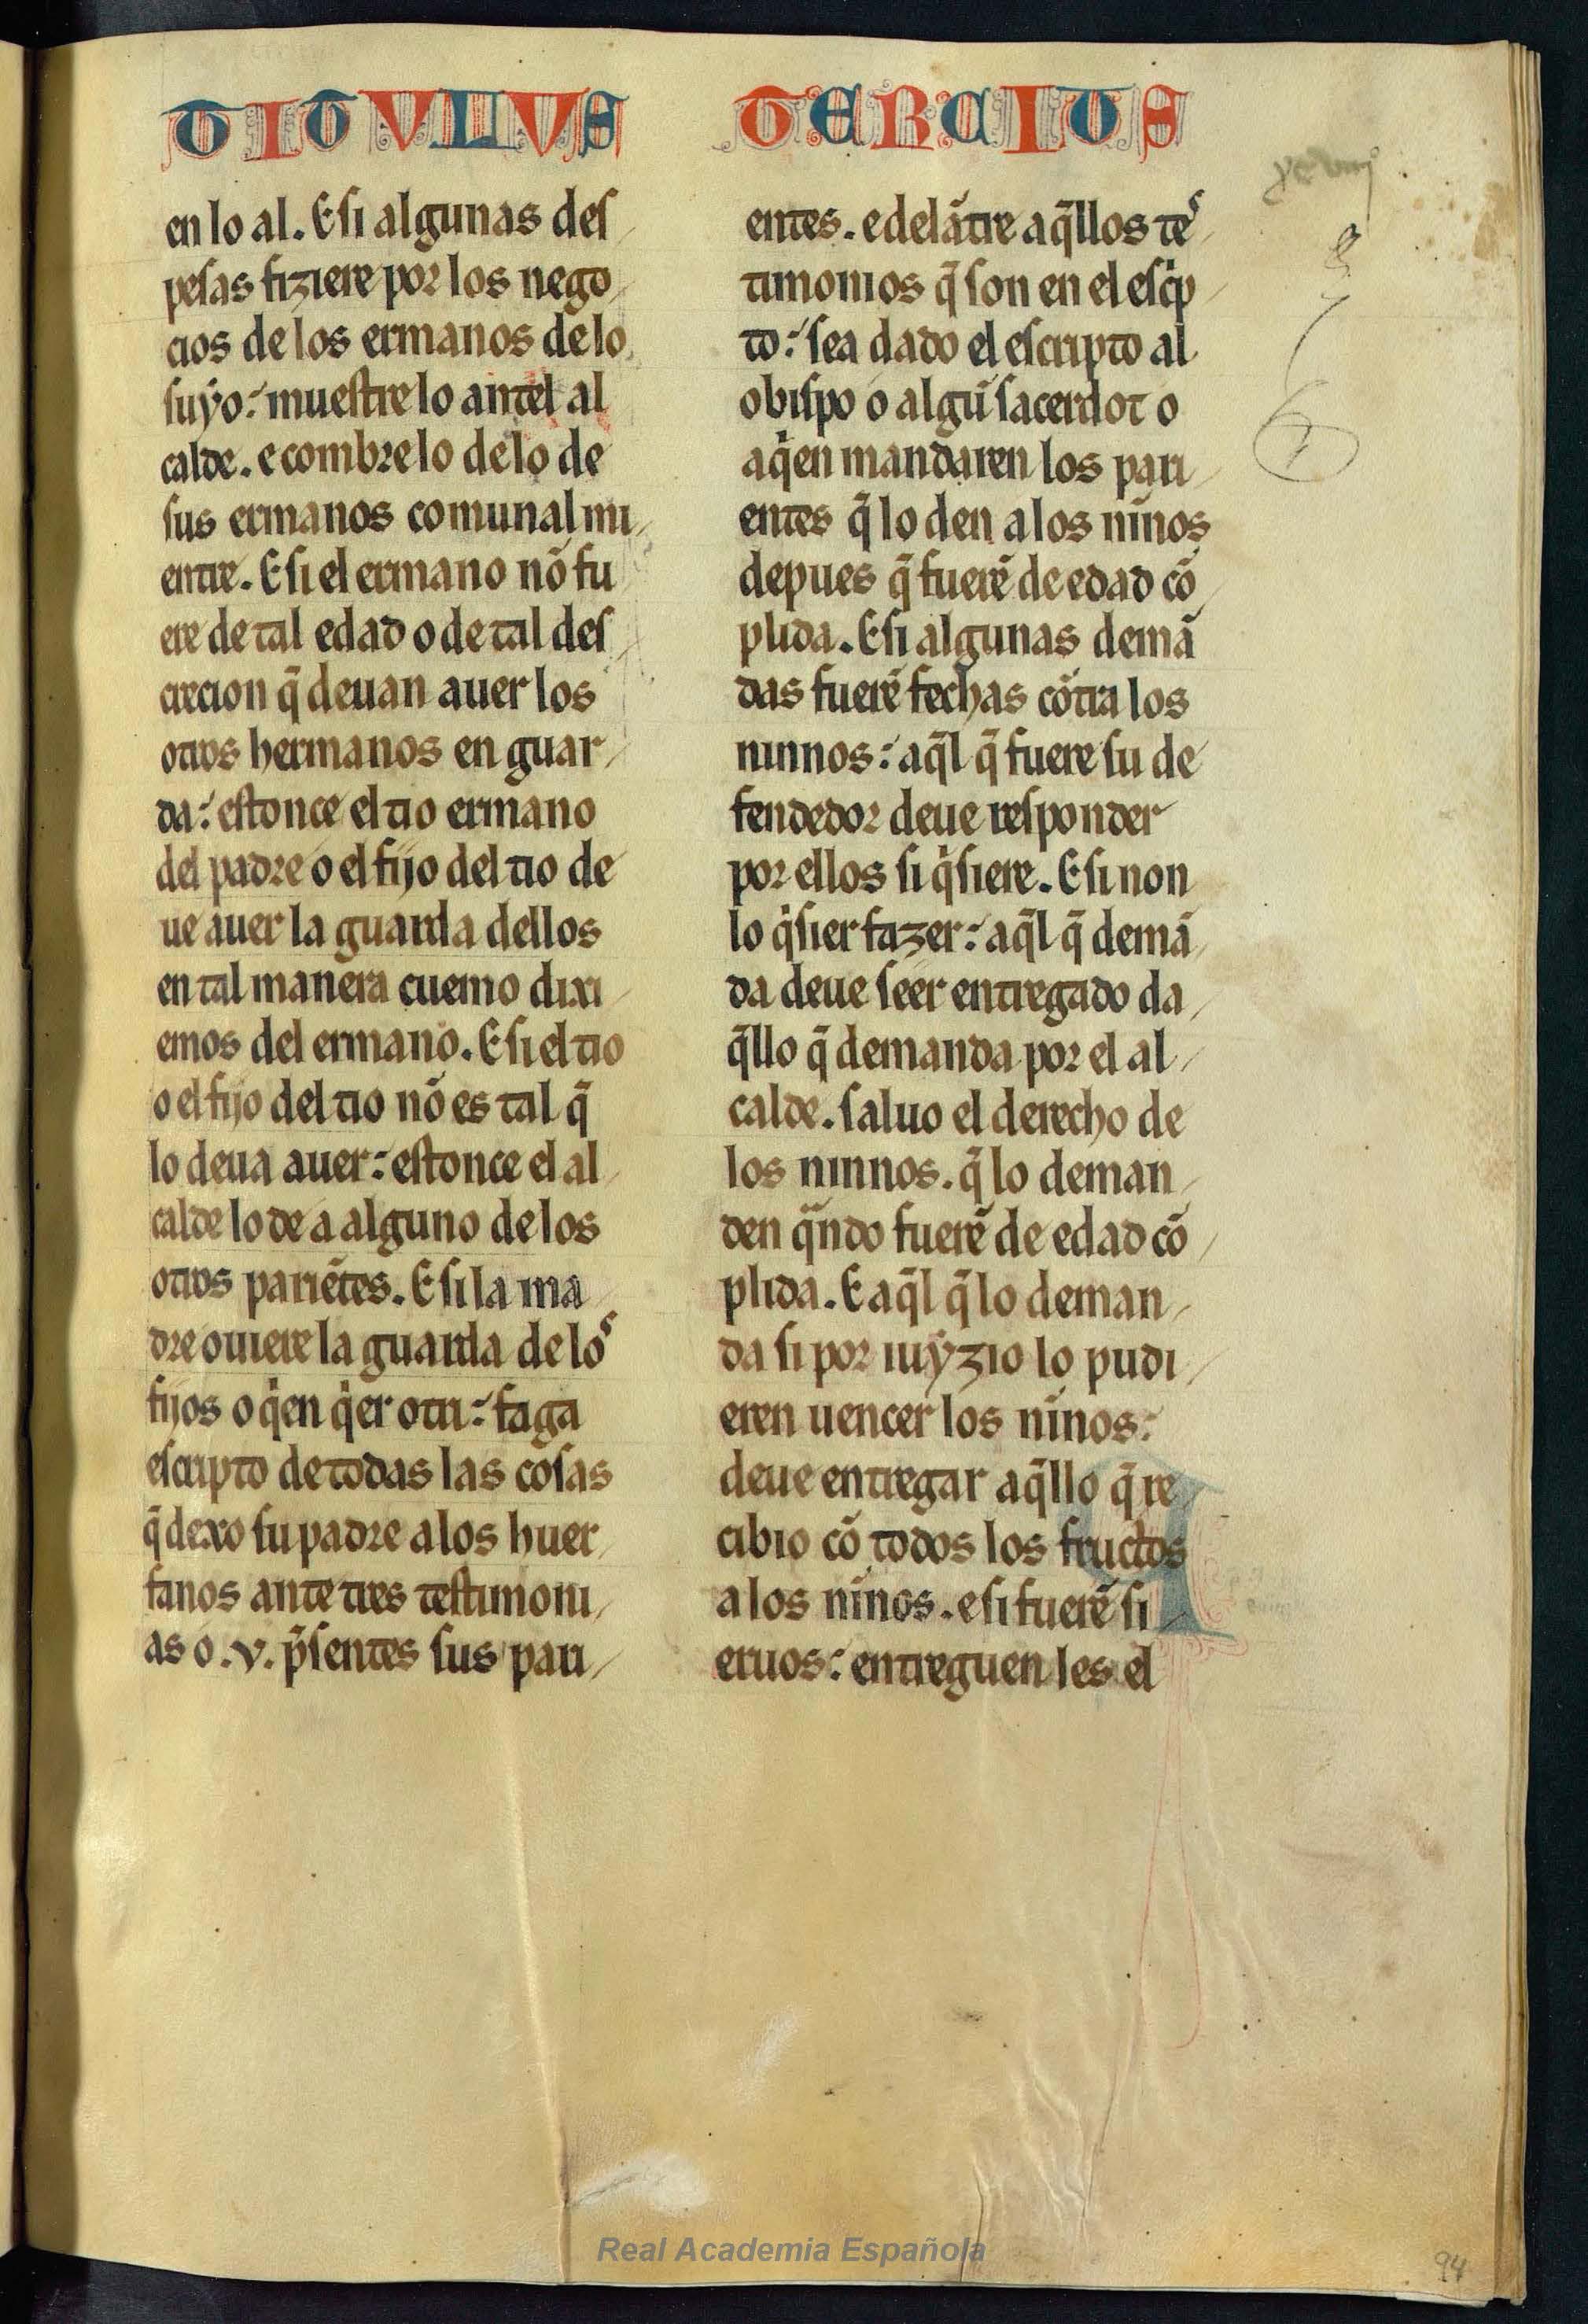 TITVLUS TERCIUS
en lo al. E ſi algunas deſ
peſas fiziere por los nego
cios de los ermanos de lo
ſuyo: mueſtre lo antel al
calde. e combre lo de lo de
ſus ermanos comunal mi
entre. E ſi el ermano nõ fu
ere de tal edad o de tal deſ
crecion q̃ deuan auer los
otros hermanos en guar
da: eſtonce el tio ermano
del padre o el fijo del tio de
ue auer la guarda dellos
en tal manera cuemo dixi
emos del ermano. E ſi el tio
o el fijo del tio nõ es tal q̃
lo deua auer: eſtonce el al
calde lo de a alguno de los
otros pariẽtes. E ſi la ma
dre ouiere la guarda de loˢ
fijos o qͥen qͥer otri: faga
eſcripto de todas las coſas
q̃ dexo ſu padre a los huer
fanos ante tres teſtimoni
as o .v. p̃ſentes ſus pari
entes. e delãtre aq̃llos teˢ
timonios q̃ ſon en el eſcͥp
to: ſea dado el eſcripto al
obiſpo o algũ ſacerdot o
a qͥen mandaren los pari
entes q̃ lo den a los nĩnos
depues q̃ fuerẽ de edad cõ
plida. E ſi algunas demã
das fuerẽ fechas cõtra los
ninnos: aq̃l q̃ fuere ſu de
fendedor deue reſponder
por ellos ſi qͥſiere. E ſi non
lo qͥſier fazer: aq̃l q̃ demã
da deue ſeer entregado da
q̃llo q̃ demanda por el al
calde. ſaluo el derecho de
los ninnos. q̃ lo deman
den qͣndo fuerẽ de edad cõ
plida. E aq̃l q̃ lo deman
da ſi por iuyzio lo pudi
eren uencer los nĩnos:
deue entregar aq̃llo q̃ re
cibio cõ todos los fructos
a los nĩnos. e ſi fuerẽ ſi
eruos: entreguen les el
94
Real Academia Española